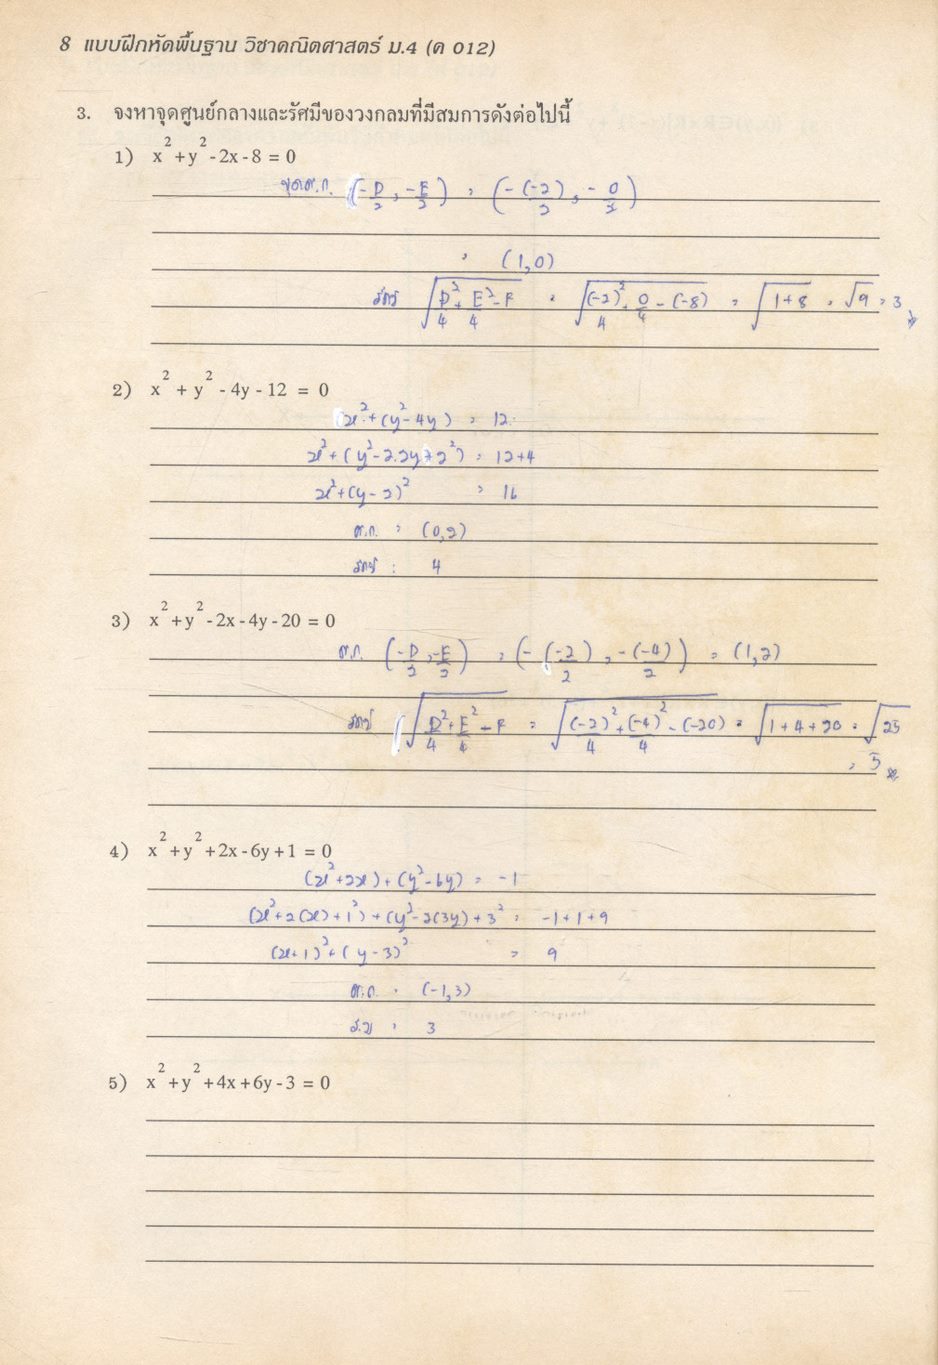 8 แบบฝึกหัดพื้นฐาน วิชาคณิตศาสตร์ ม.4 (ค 012)
3. จงหาจุดศูนย์กลางและรัศมีของวงกลมที่มีสมการดังต่อไปนี้
1) x² + y² - 2x - 8 = 0
(-D/2, -E/2) = (-(-2)/2, -0/2)
= (1,0)
√(D²/4 + E²/4 - F) = √((-2)²/4 + 0/4 - (-8)) = √(1+8) = √9 = 3
2) x² + y² - 4y - 12 = 0
x² + (y² - 4y) = 12
x² + (y² - 2.2y + 2²) = 12+4
x² + (y - 2)² = 16
ศ.ก. = (0,2)
รัศมี = 4
3) x² + y² - 2x - 4y - 20 = 0
ศ.ก. (-D/2, -E/2) = (-(-2)/2, -(-4)/2) = (1,2)
รัศมี √(D²/4 + E²/4 - F) = √((-2)²/4 + (-4)²/4 - (-20)) = √(1+4+20) = √25
= 5
4) x² + y² + 2x - 6y + 1 = 0
(x² + 2x) + (y² - 6y) = -1
(x² + 2(x) + 1²) + (y² - 2(3y) + 3² = -1+1+9
(x+1)² + (y-3)² = 9
ศ.ก. = (-1,3)
ร.ม = 3
5) x² + y² + 4x + 6y - 3 = 0